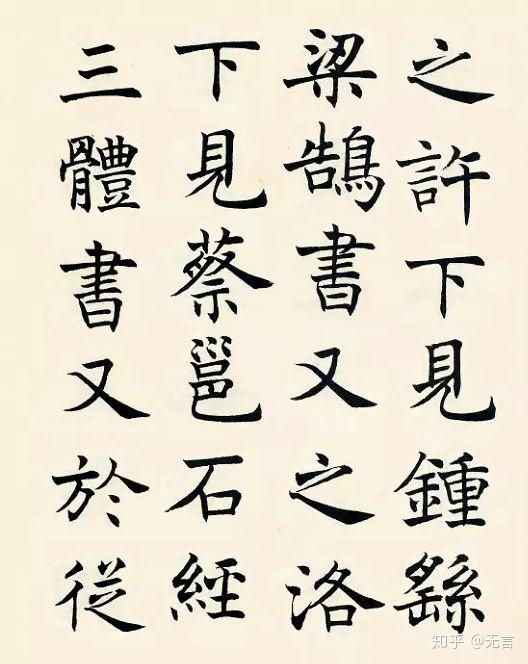 之許下見鍾繇
梁鵠書又之洛
下見蔡邕石經
三體書又於從
知乎 @无言